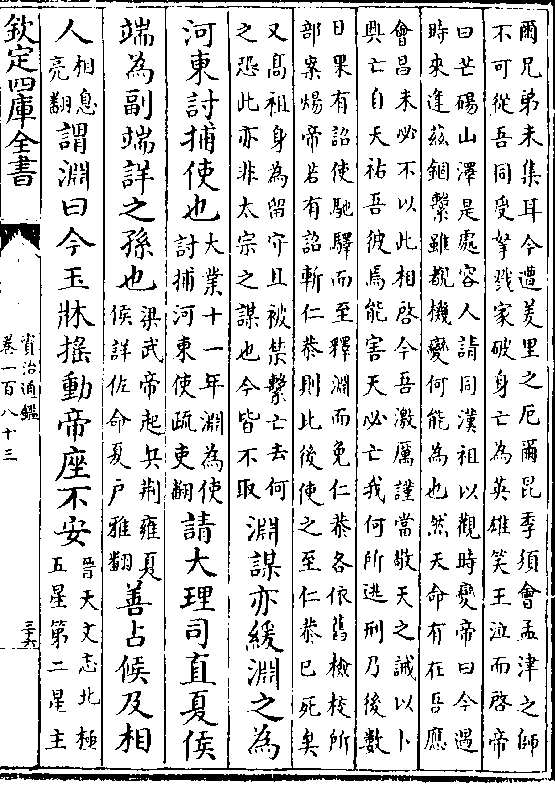 爾兄弟未集耳今遭羑里之厄爾昆季須會孟津之師
不可從吾同受孥戮家破身亡為英雄笑王泣而啓帝
曰芒碭山澤是處容人請同漢祖以觀時變帝曰今遇
時來逢茲錮繫雖覩機變何能為也然天命有在吾應
會昌未必不以此相啓今吾激厲謹當敬天之誡以卜
興亡自天祐吾彼焉能害天必亡我何所逃刑乃後數
日果有詔使馳驛而至釋淵而免仁恭各依舊檢校所
部案煬帝若有詔斬仁恭則此後使之至仁恭已死矣
又髙祖身為留守且被禁繫亡去何
之恐此亦非太宗之謀也今皆不取
淵謀亦緩淵之為
河東討捕使也
大業十一年淵為使
討捕河東使疏吏翻
請大理司直夏侯
端為副端詳之孫也
梁武帝起兵荆雍夏
侯詳佐命夏戶雅翻
善占候及相
人
相息
亮翻
謂淵曰今玉牀揺動帝座不安
晉天文志北極
五星第二星主
欽定四庫全書
資治通鑑
卷一百八十三
三六